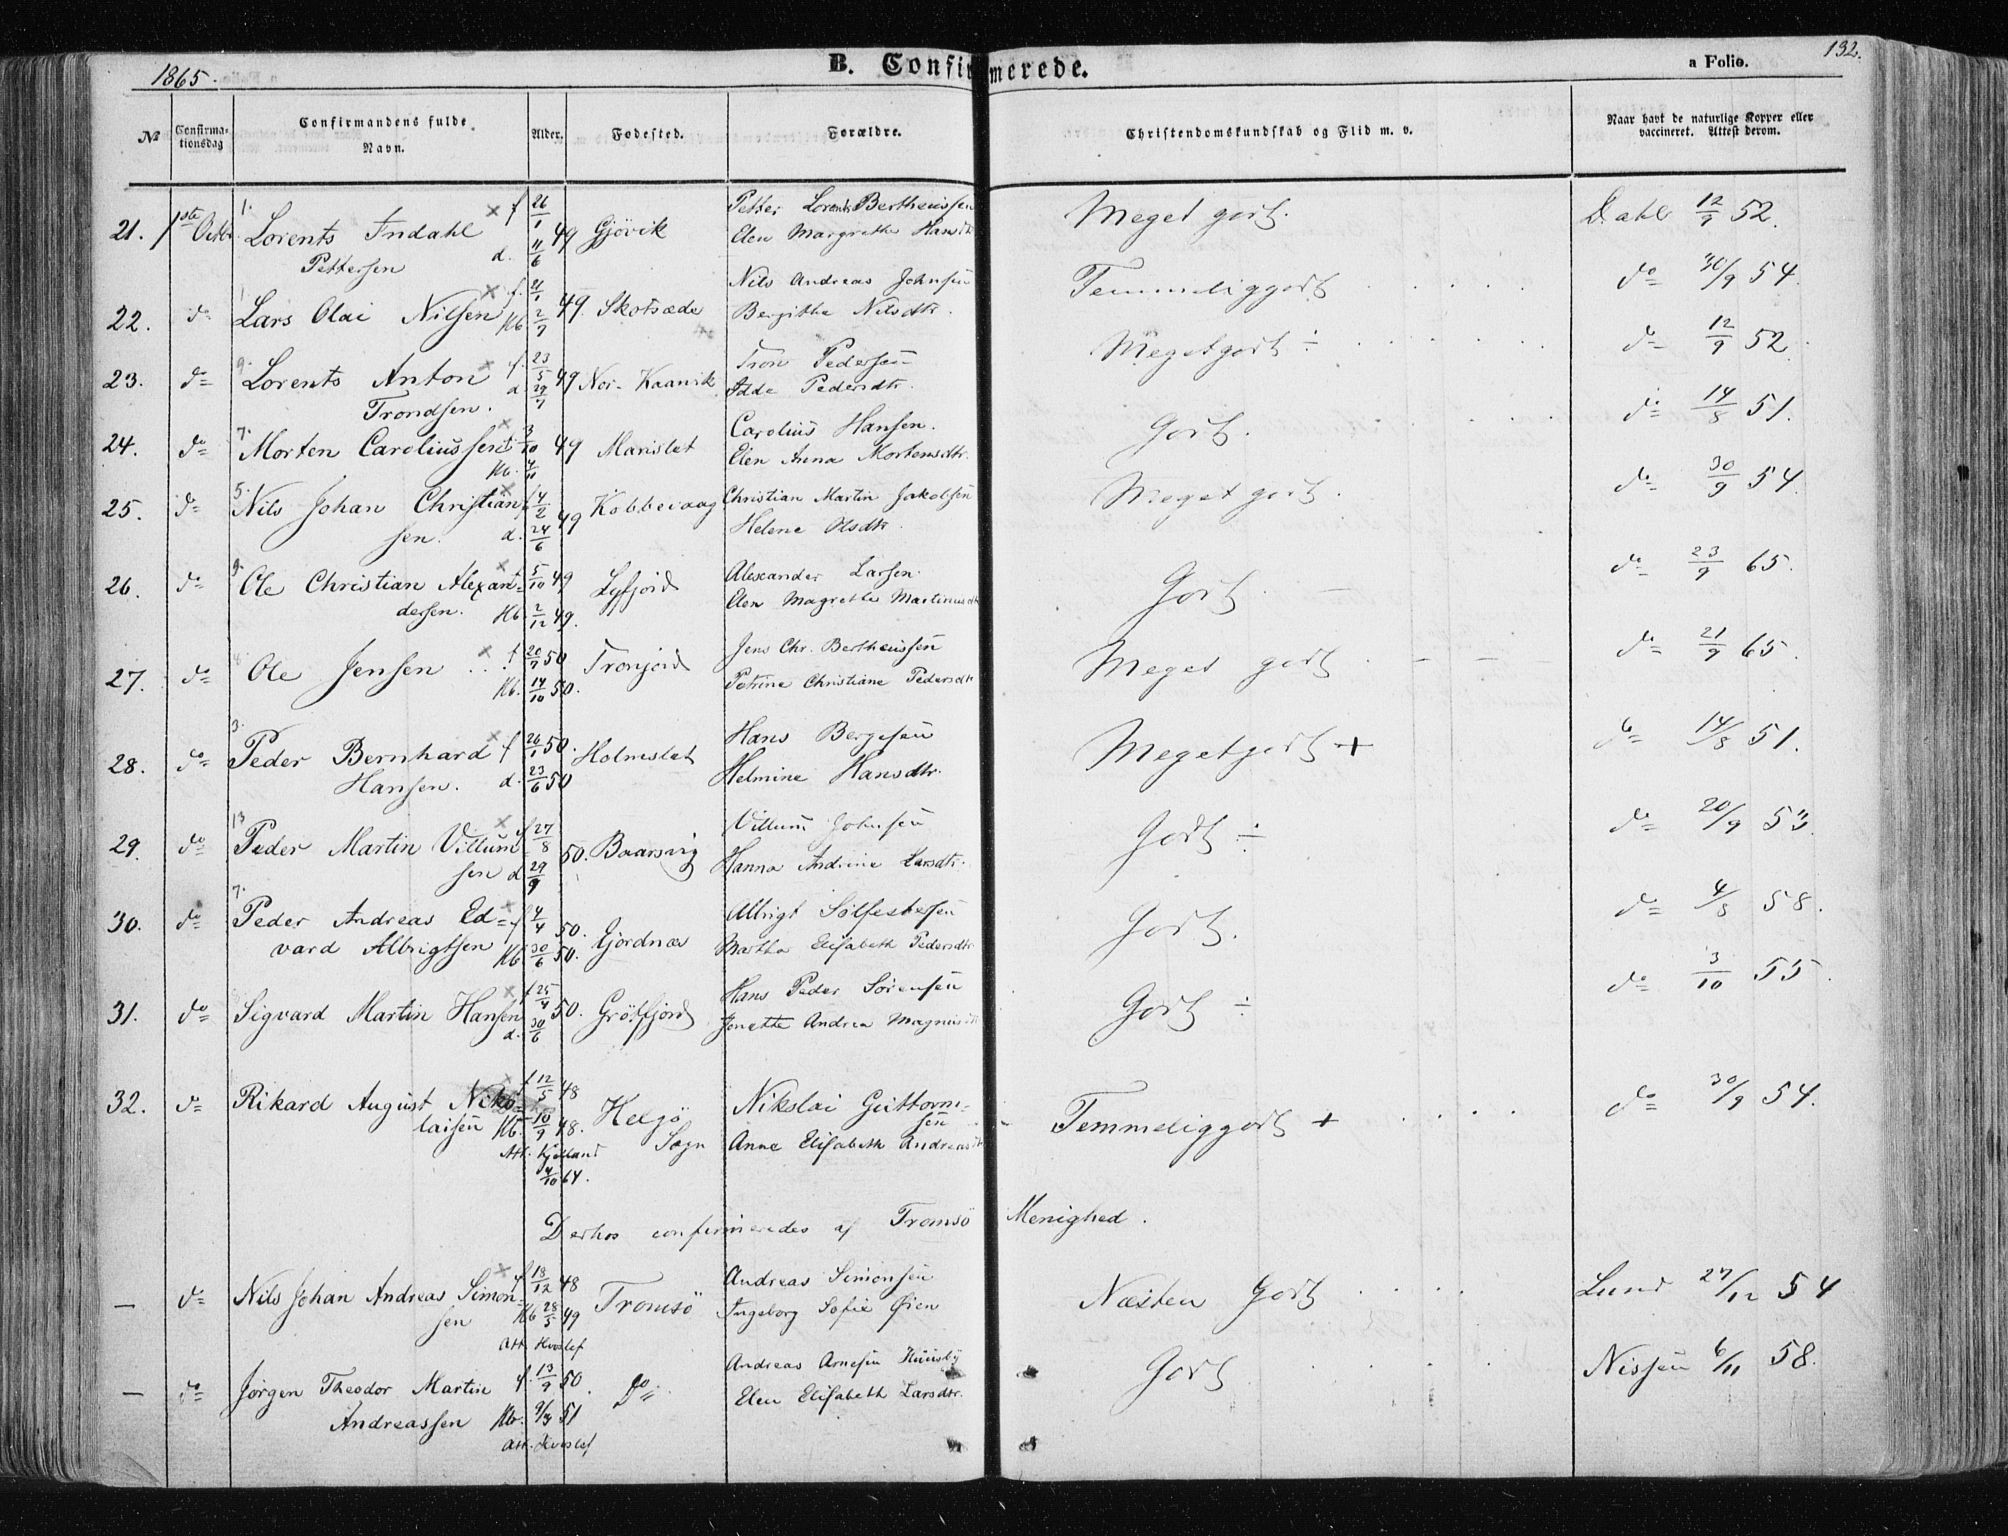 1865.
B. Confirmerede.
a Folio.
132.
№
Confirmationsdag
Confirmandens fulde Navn.
Alder.
Fødested.
Forældre.
Christendomskundskab og Flid m. v.
Naar havt de naturlige Kopper eller vaccineret. Attest derom.
21. 1ste Octbr. 1. Lorents Indahl × f 26/1 49 Gjövik Petter Lorents Bertheussen Meget godt. Dahl 12/9 52.
Pettersen d. 11/6 Elen Margrethe Hansdtr
22. do 1 Lars Olai Nilsen × f. 21/1 49. Skotsæde Nils Andreas Johnsen Temmeliggodt do 30/9 54.
Hb. 2/7 Bergitha Nilsdtr.
23. do 9. Lorents Anton × f. 23/5 49 Nor-Kaavik Tron Pedersen Megetgodt ÷ do 12/9 52.
Trondsen. d 29/7 Idde Pedersdtr.
24. do 7. Morten Caroliussen × f 3/10 49 Marislet Carolius Hansen. Godt. do 14/8 51.
Hb. 4/11 Elen Anna Mortensdtr.
25. do 5. Nils Johan Christian × f 4/2 49 Kobbevaag Christian Martin Jakobsen Meget godt. do 30/9 54.
sen. d. 24/6 Helene Olsdtr.
26. do 9. Ole Christian Alexan= × f 5/10 49 Lyfjord Alexander Larsen. Godt. do 23/9 65.
dersen. Hb. 2/12 49. Elen Magrethe Martinusdtr
27. do 8. Ole Jensen × f 20/7 50 Tronjord Jens Chr. Bertheussen Meget godt. do 21/9 65.
Hb. 14/10 50. Petrine Christiane Pedersdtr
28. do 3. Peder Bernhard × f 26/1 50. Holmeslet Hans Bergesen Megetgodt + do 14/8 51.
Hansen. d. 23/6 50 Helmine Hansdtr.
29. do 13. Peder Martin Villum= × f 27/8 50. Baarsvig Villum Johnsen Godt ÷ do 20/9 53.
sen d 29/9 Hanna Andrine Larsdtr.
30. do 7. Peder Andreas Ed= × f 4/4 50. Gjordnæs Albrigt Sölfestersen Godt. do 4/8 58.
vard Albrigtsen Hb 30/6 50. Martha Elisabeth Pedersdtr
31. do Sigvard Martin Hansen × f 25/4 50. Grötfjord Hans Peder Sörensen Godt ÷ do 3/10 55.
d. 30/6 Jonetta Andrea Magnusdtr
32. do Rikard August Niko= × f 12/5 48 Helgö Nikolai Guttorm= Temmeliggodt + do 30/9 54.
laisen Hb. 10/9 48. Sogn sen
Att. Kjelland Anne Elisabeth Andreasdtr
4/10 64.
Derhos confirmeredes af Tromsö Menighed.
— do Nils Johan Andreas Simon= × f 18/12 48 Tromsö Andreas Simonsen Næsten Godt Lund 27/12 54
sen Hb 28/5 49 Ingeborg Sofie Øien
Att. Hvoslef
— do Jørgen Theodor Martin f. 13/9 50. do Andreas Arnesen Huusby Godt Nissen 6/11 58.
Andreassen Hb. 9/3 51 Elen Elisabeth Larsdtr.
Att. Hvoslef